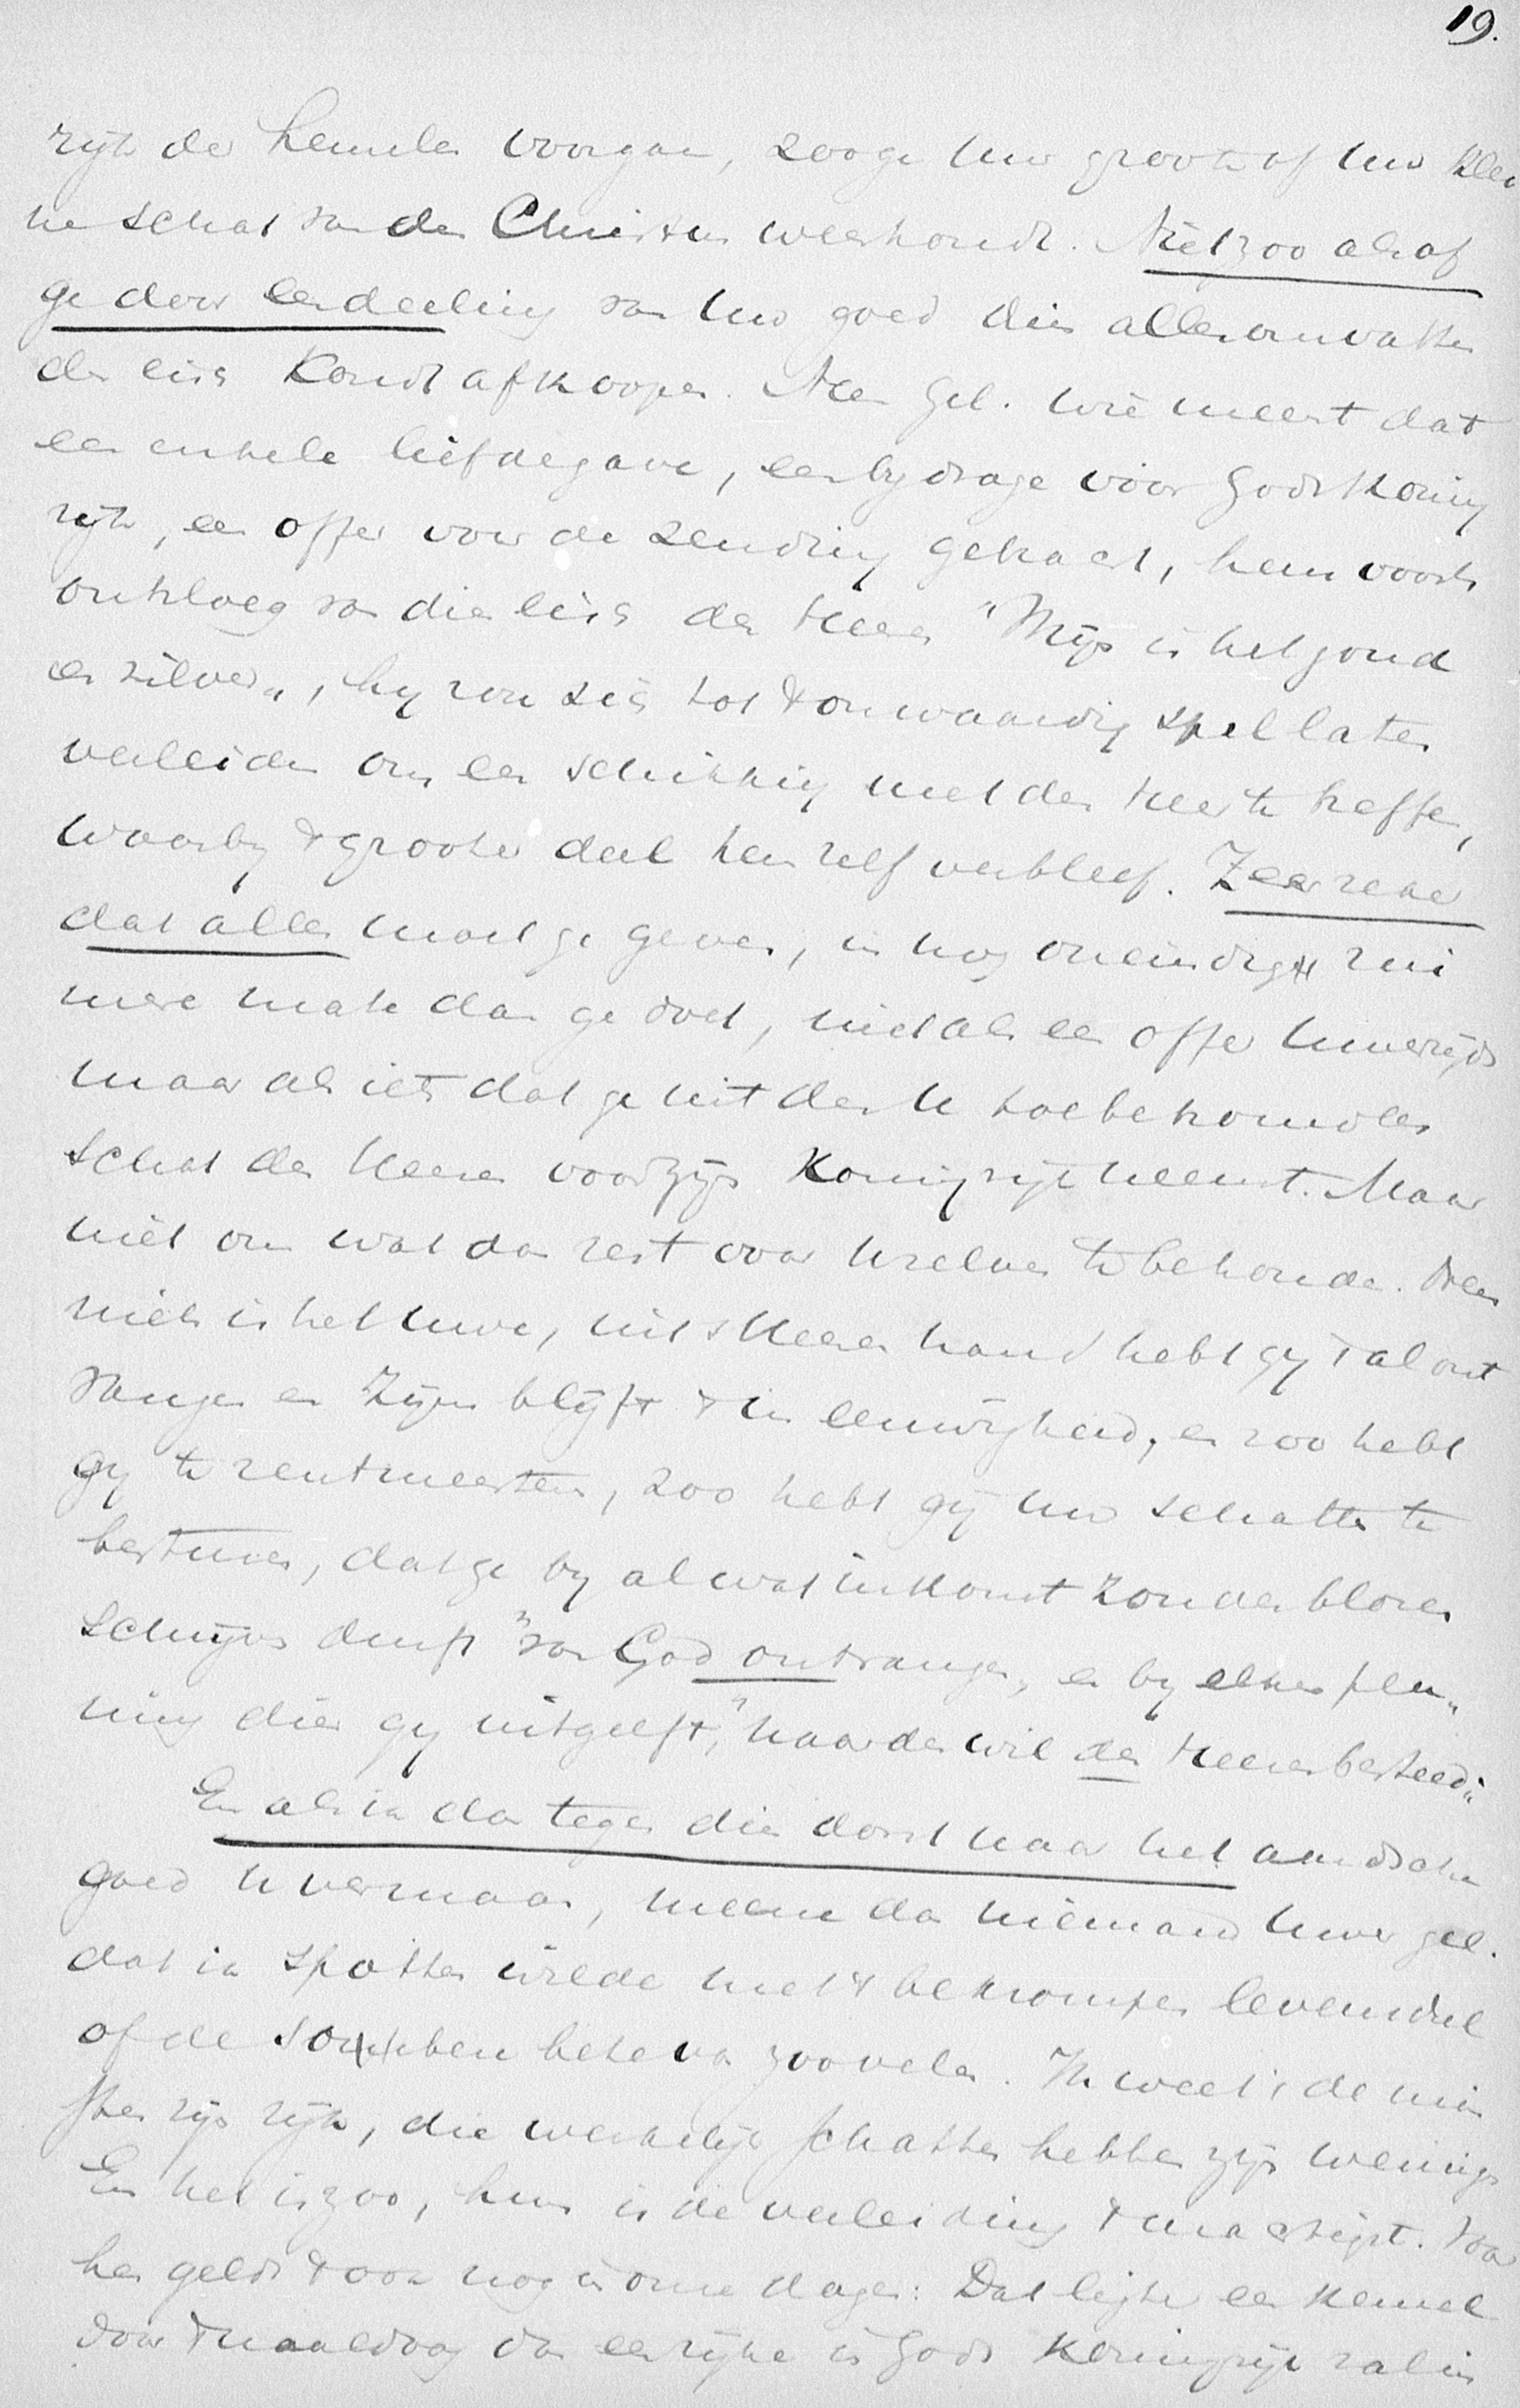 19.
rijk der hemelen voorgaan, zoo ge uw groote of uw klei
ne schat van den Christus weerhoudt. Niet zoo alsof
ge door een deeling van uw goed dien allesomvatten
den eisch kondt afkoopen. Neen Gel. wie meent dat
een enkele liefdegave, een bydrage voor Gods Koning
rijk, een offer voor de zending gebracht, hem voorts
ontsloeg van dien eisch des Heeren "Mijn is het goud
en zilver", hy zou zich tot 't onwaardig spel laten
verleiden om een schikking met den Heer te treffen,
waarby 't grooter deel hem zelf verbleef. Zeer zeker
dat alles moet ge geven, in nog oneindig rui
mere mate dan ge doet, niet als een offer uwerzijds
maar als iets dat ge uit den u toebetrouwden
schat des Heeren voor Zijn Koningrijk neemt. Maar
niet om wat dan rest voor uzelven te behouden. Neen
niets is het uwe, uit 's Heeren hand hebt gy 't al ont
vangen en Zijn blijft 't in eeuwigheid, en zoo hebt
gy te rentmeesteren, zoo hebt gij uw schatten te
besturen, dat ge by al wat inkomt zonder blozen
schrijven durft "van God ontvangen", en by elken pen„
ning dien gy uitgeeft, "naar den wil des Heeren besteed".
En als ik dan tegen dien dorst naar het aardsche
goed u vermaan, meene dan niemand uwer gel.
dat ik spotten wilde met 't bekrompen levensdeel
of de sombere van zoovelen. Ik weet 't de min
sten zijn rijk, die werkelijk schatten hebben zijn weinigen
En het is zoo, hun is de verleiding 't machtigst. Voor
hen geldt 't ook nog in onze dagen: Dat lichter een kemel
door 't naaldoog dan een rijke in Gods Koningrijk zal in